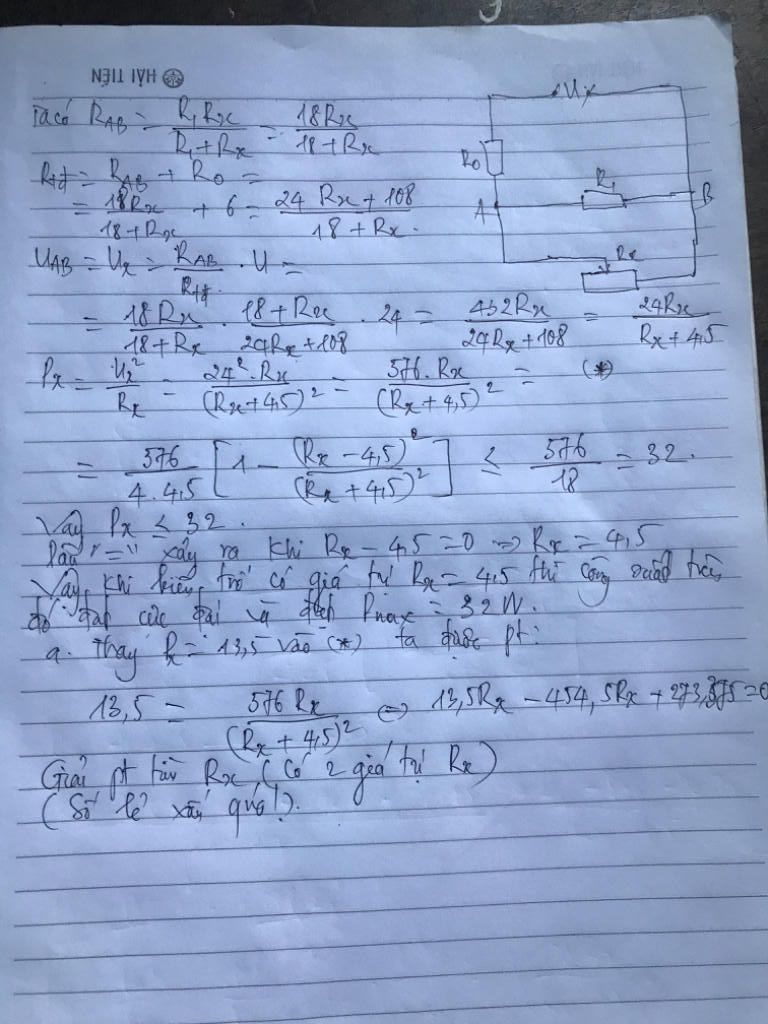 HẢI TIẾN
Ta có R_AB = R₁Rx / (R₁ + Rx) = 18Rx / (18 + Rx)
Rtđ = R_AB + R₀ =
= 18Rx / (18 + Rx) + 6 = (24 Rx + 108) / (18 + Rx).
U_AB = Ux = R_AB / Rtđ . U =
= 18Rx / (18 + Rx) . (18 + Rx) / (24Rx + 108) . 24 = 432Rx / (24Rx + 108) = 24Rx / (Rx + 4,5)
Px = Ux² / Rx = 24² . Rx / (Rx + 4,5)² = 576 . Rx / (Rx + 4,5)² = (*)
= 576 / (4 . 4,5) [1 - (Rx - 4,5)² / (Rx + 4,5)²] ≤ 576 / 18 = 32.
Vậy Px ≤ 32.
Dấu "=" xảy ra khi Rx - 4,5 = 0 => Rx = 4,5
Vậy khi biến trở có giá trị Rx = 4,5 thì công suất trên
đó đạt cực đại và Pmax = 32W.
a. Thay = 13,5 vào (*) ta được pt:
13,5 = 576 Rx / (Rx + 4,5)² <=> 13,5Rx - 454,5Rx + 273,375 = 0
Giải pt tìm Rx (có 2 giá trị Rx)
(Số lẻ xấu quá!).
U
R₀
R₁
A
B
Rx